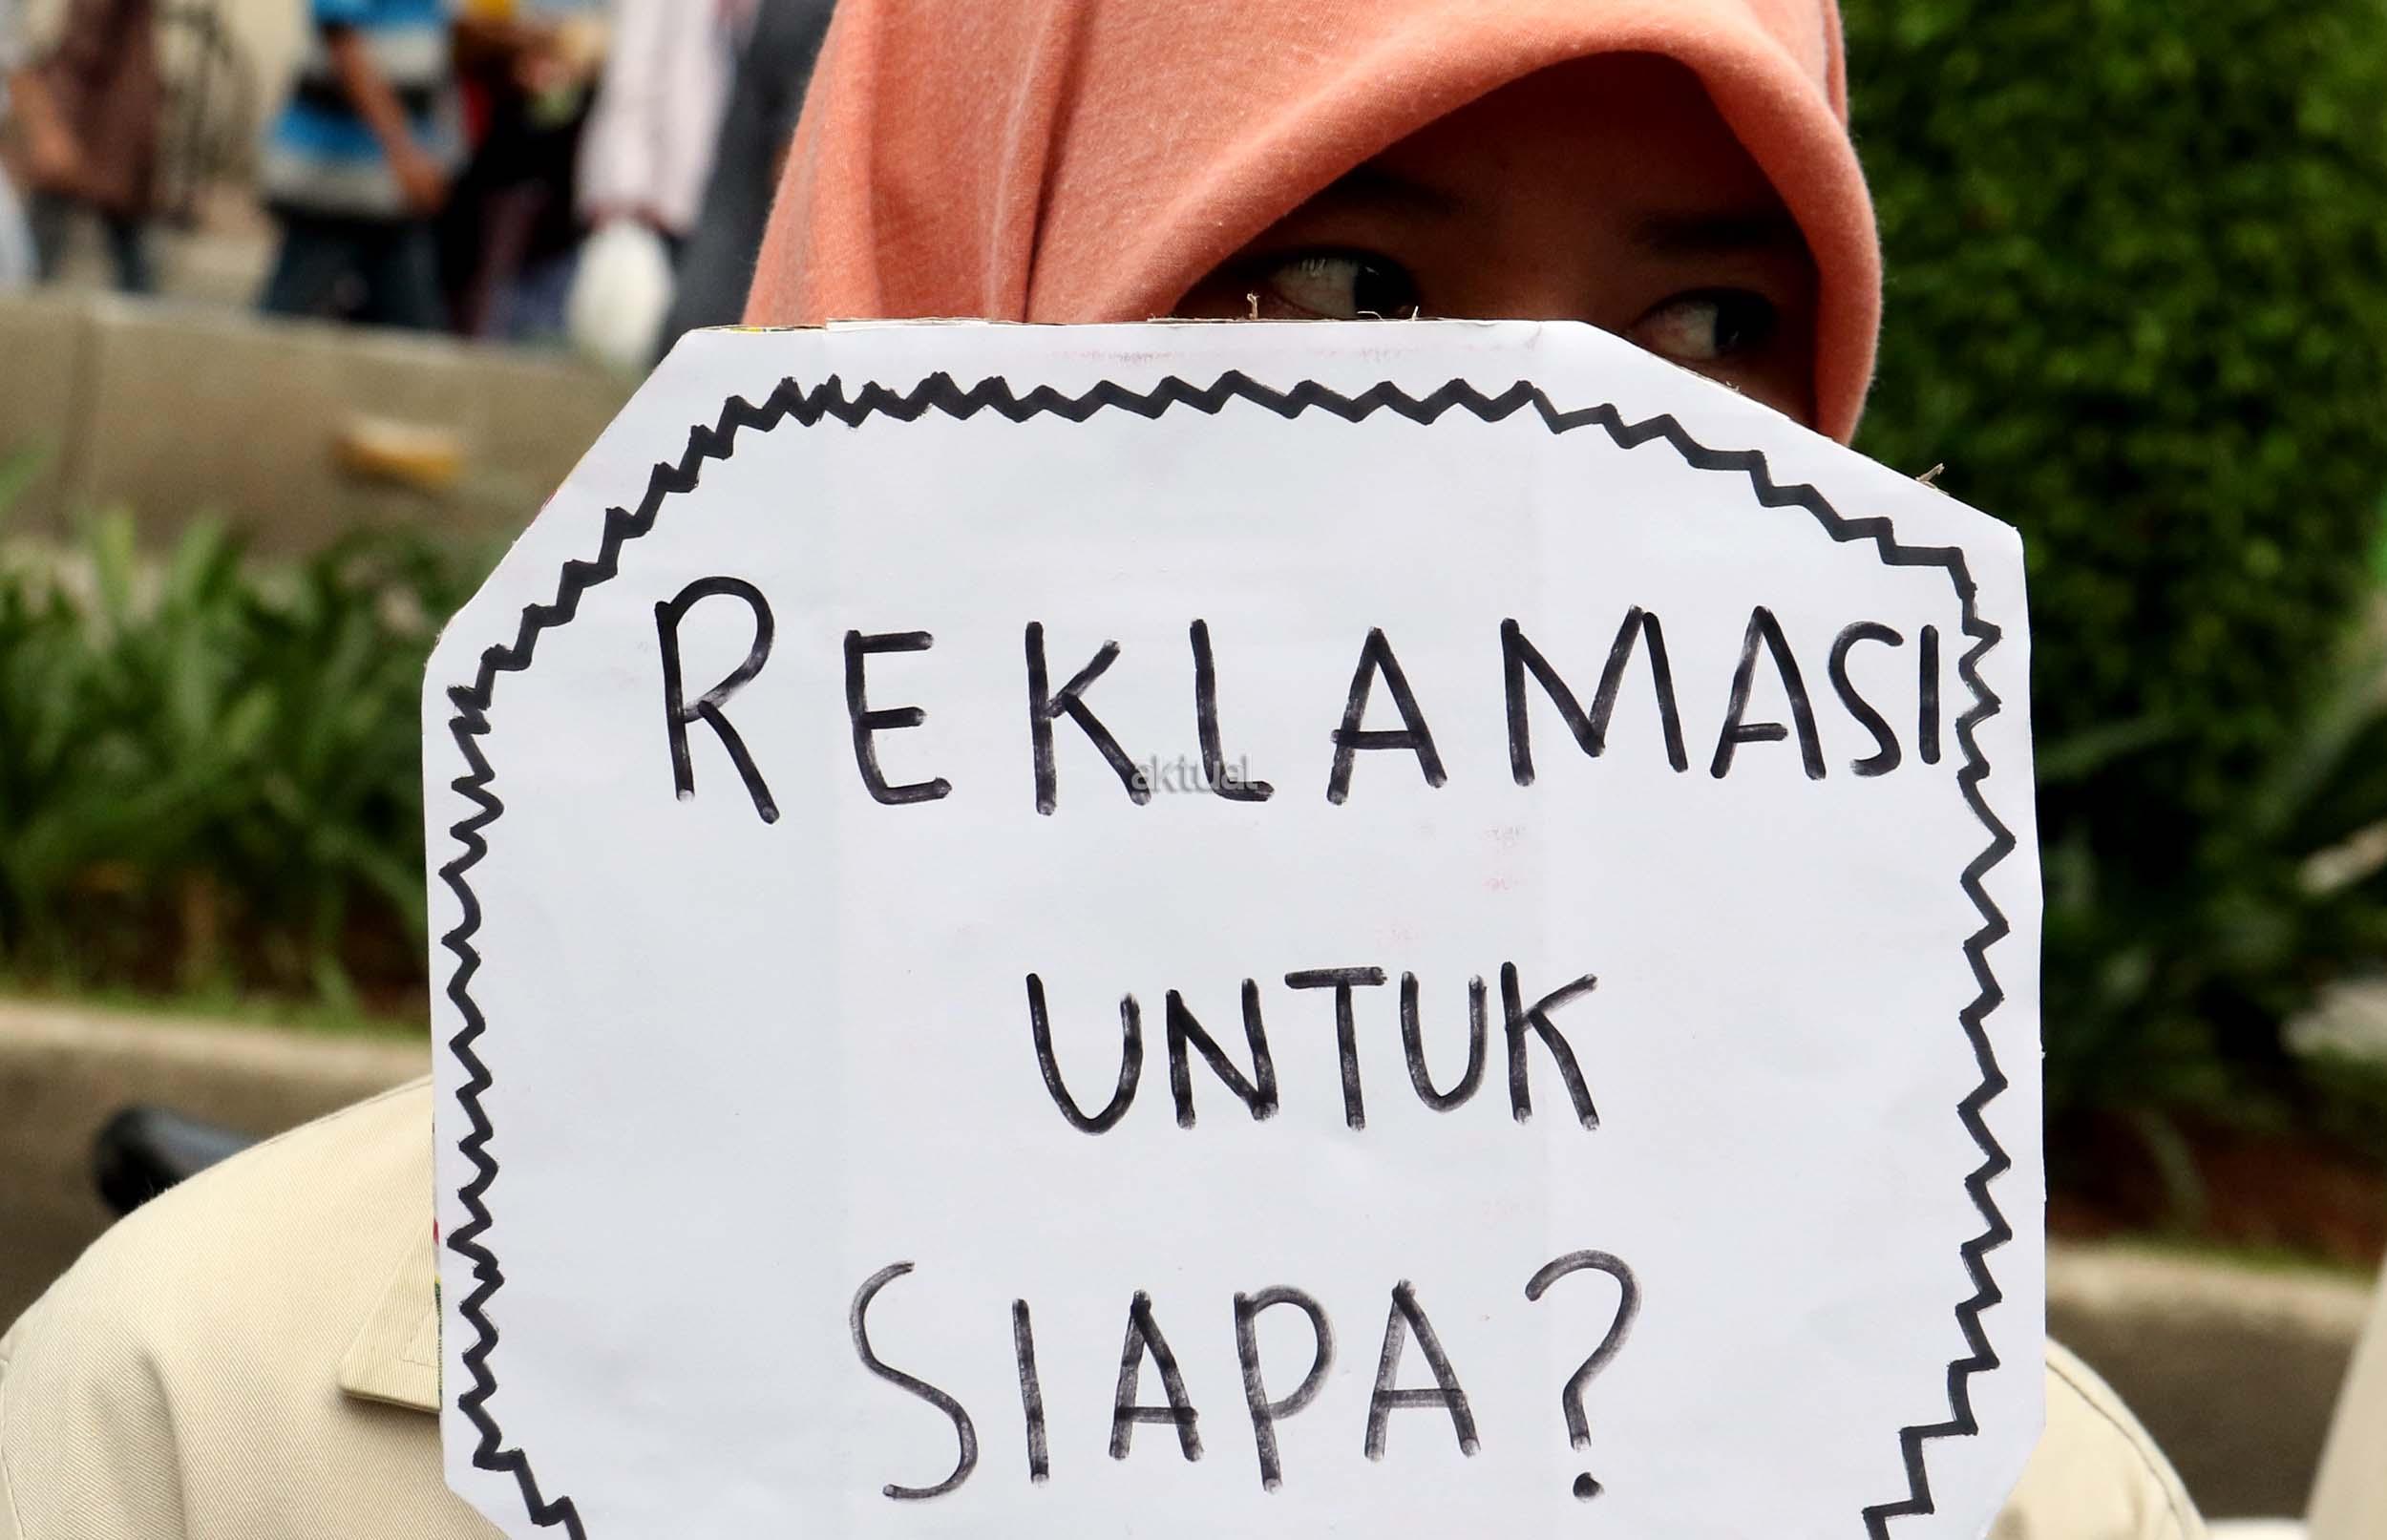 REKLAMASI
aktual
UNTUK
SIAPA?